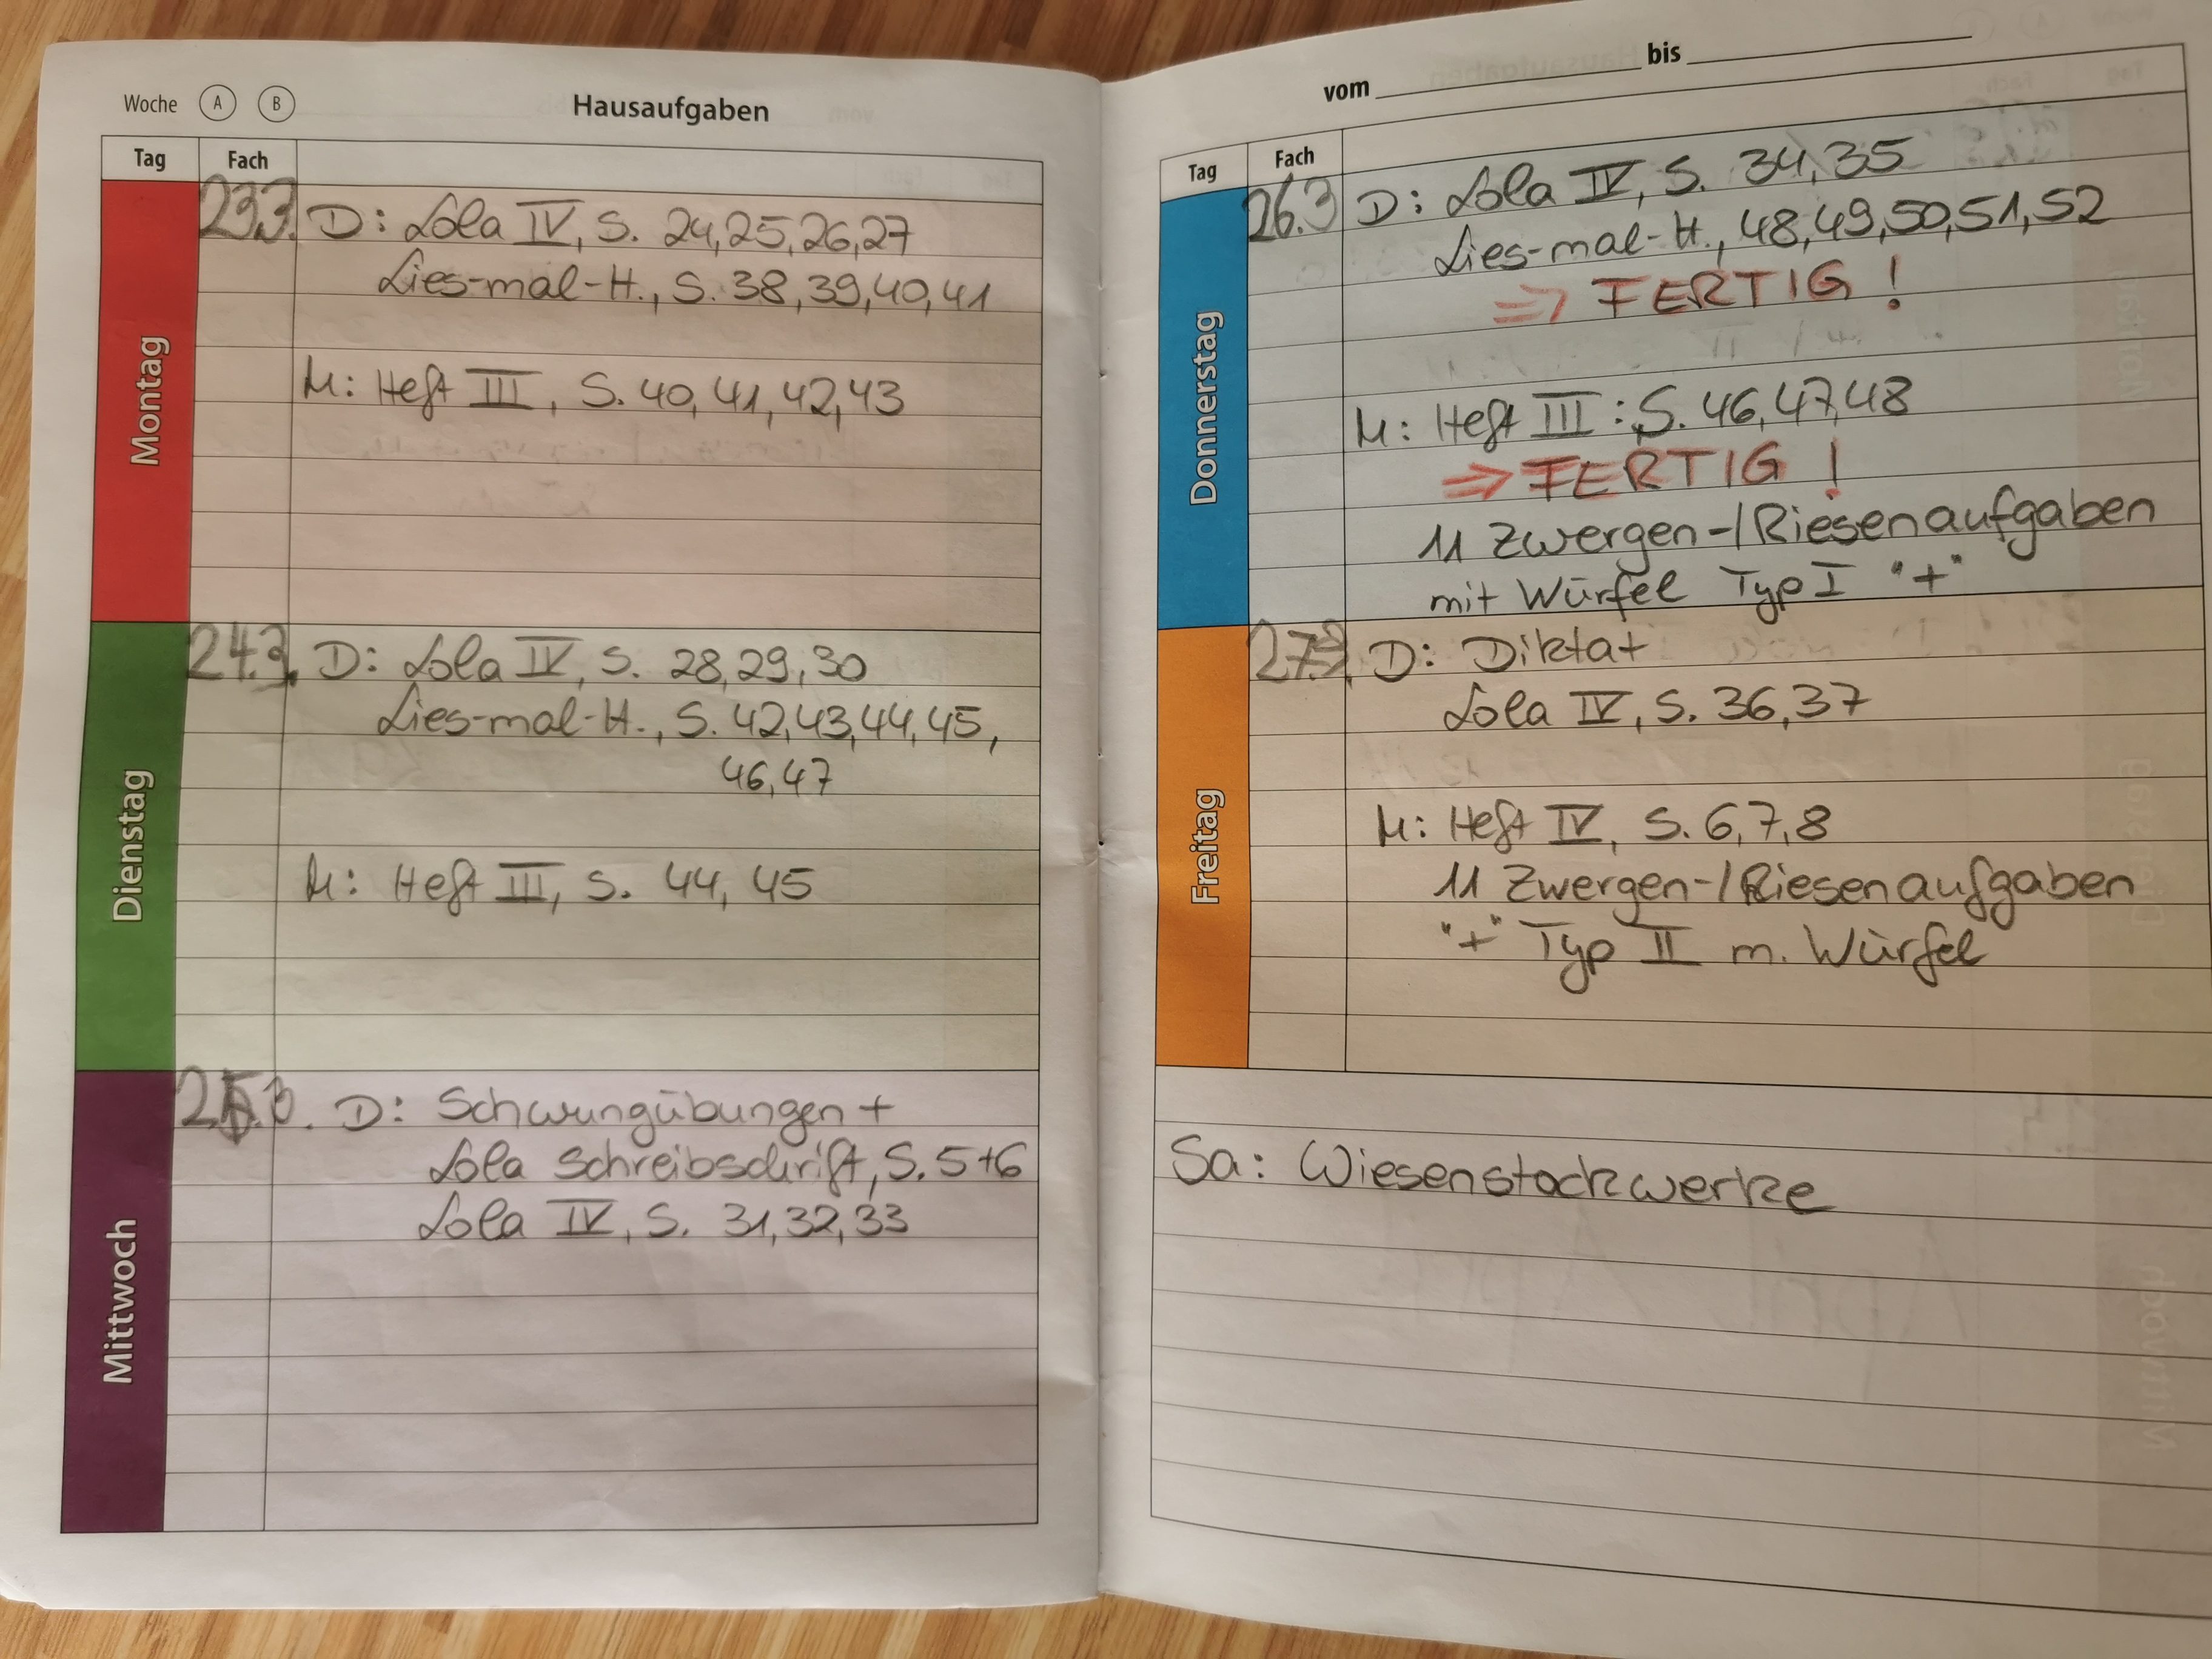 Woche A B Hausaufgaben
Tag Fach
Montag
23.3. D: Lola IV, S. 24,25,26,27
Lies-mal-H., S. 38,39,40,41
M: Heft III, S. 40,41,42,43
Dienstag
24.3. D: Lola IV, S. 28,29,30
Lies-mal-H., S. 42,43,44,45,
46,47
M: Heft III, S. 44, 45
Mittwoch
25.3. D: Schwungübungen +
Lola Schreibschrift, S. 5+6
Lola IV, S. 31,32,33
vom bis
Tag Fach
Donnerstag
26.3 D: Lola IV, S. 34,35
Lies-mal-H., 48,49,50,51,52
=> FERTIG !
M: Heft III : S. 46,47,48
=> FERTIG !
11 Zwergen-/Riesenaufgaben
mit Würfel Typ I "+"
Freitag
27.3. D: Diktat
Lola IV, S. 36,37
M: Heft IV, S. 6,7,8
11 Zwergen-/Riesenaufgaben
"+" Typ II m. Würfel
Sa: Wiesenstockwerke